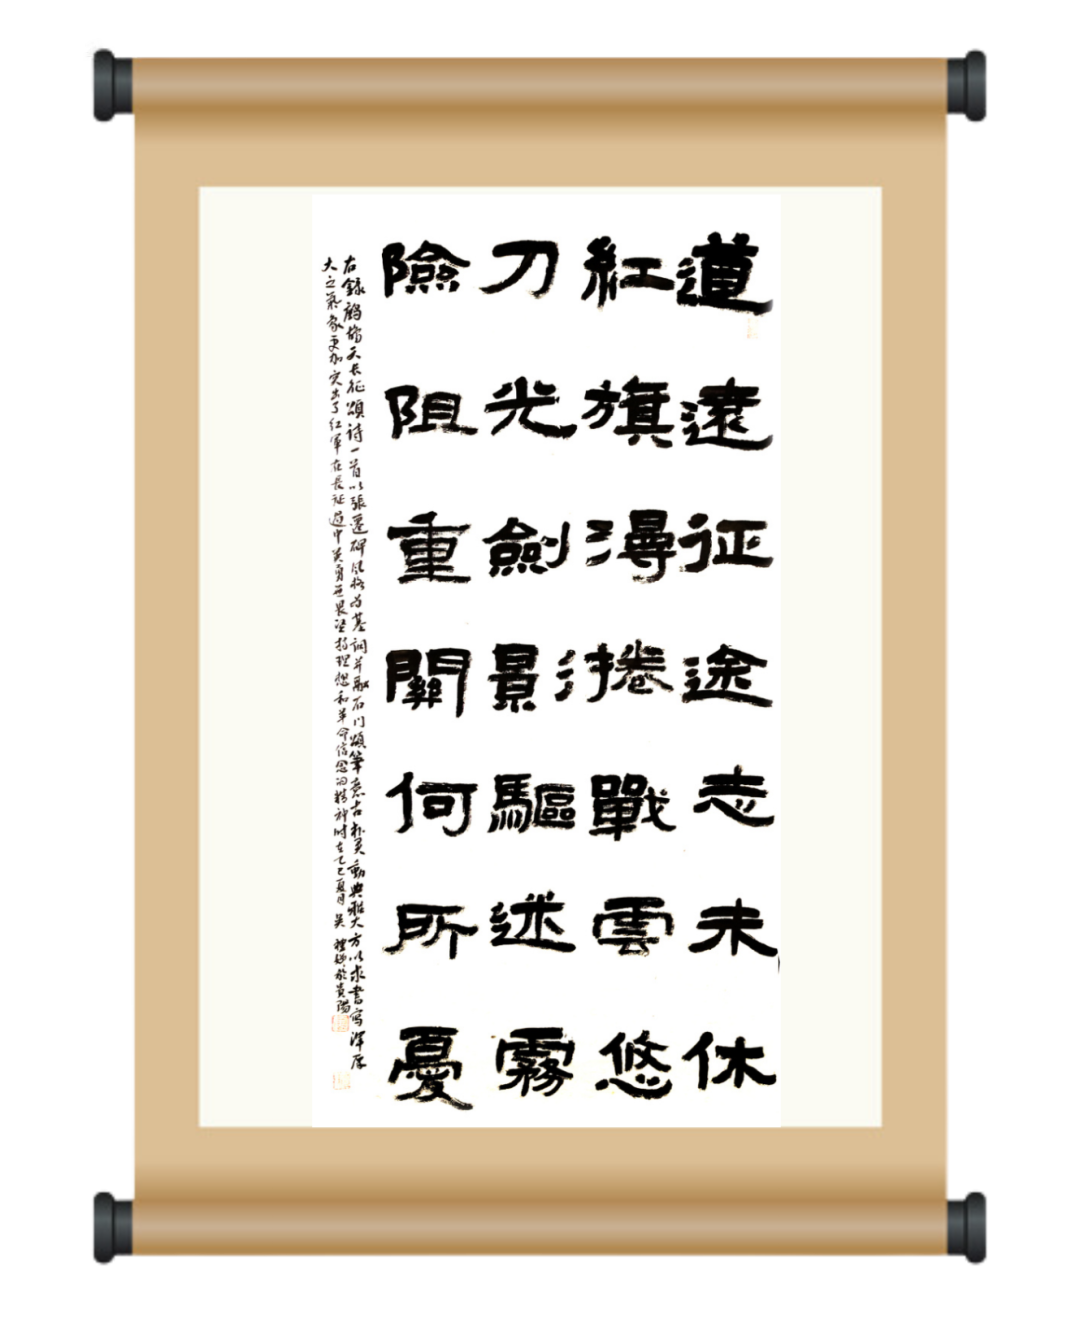 道遠征途志未休
紅旗漫捲戰雲悠
刀光劍影驅迷霧
險阻重關何所憂
右錄鷓鴣天长征頌詩一首以張遷碑風格为基调并融石门頌筆意古朴灵動典雅大方以求書寫渾厚
大之氣象更加突出了红軍在長征途中英勇無畏坚持理想和革命信念的精神时在乙巳夏月吴 於貴陽